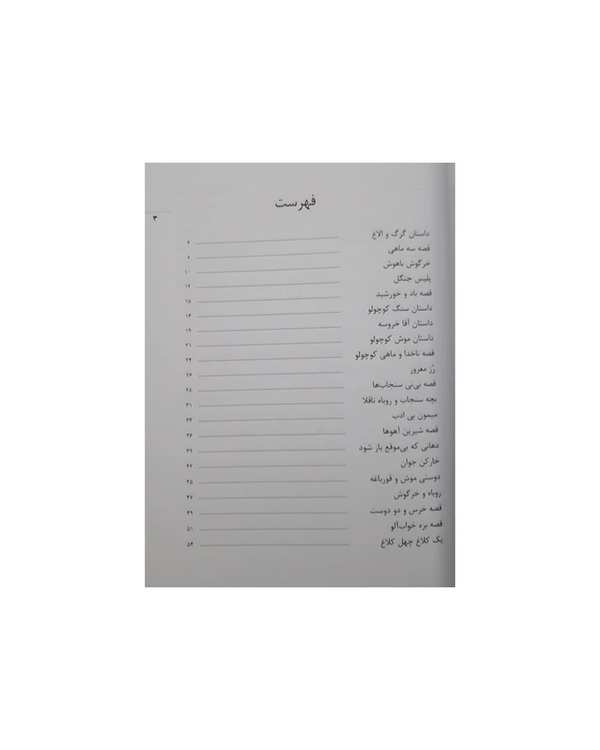 فهرست
۳
داستان گرگ و الاغ
قصه سه ماهی
خرگوش باهوش ۱۰
پلیس جنگل ۱۲
قصه باد و خورشید ۱۵
داستان سنگ کوچولو
داستان آقا خروسه ۱۹
داستان موش کوچولو ۲۱
قصه ناخدا و ماهی کوچولو ۲۴
رُز مغرور ۲۶
قصه نی‌نی سنجاب‌ها ۲۸
بچه سنجاب و روباه ناقلا ۳۱
میمون بی ادب ۳۳
قصه شیرین آهوها ۳۶
دهانی که بی‌موقع باز شود ۳۹
خارکن جوان ۴۲
دوستی موش و قورباغه ۴۵
روباه و خرگوش ۴۷
قصه خرس و دو دوست ۴۹
قصه بره خواب‌آلو ۵۱
یک کلاغ چهل کلاغ ۵۳